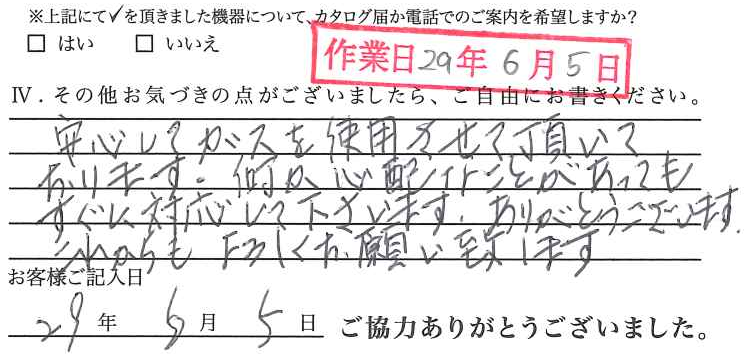 ※上記にて✓を頂きました機器について、カタログ届か電話でのご案内を希望しますか?
□ はい □ いいえ
作業日29年6月5日
Ⅳ.その他お気づきの点がございましたら、ご自由にお書きください。
安心してガスを使用させて頂いて
おります。何か心配なことがあっても
すぐに対応して下さいます。ありがとうございます。
これからも よろしくお願い致します
お客様ご記入日
29 年 6 月 5 日 ご協力ありがとうございました。